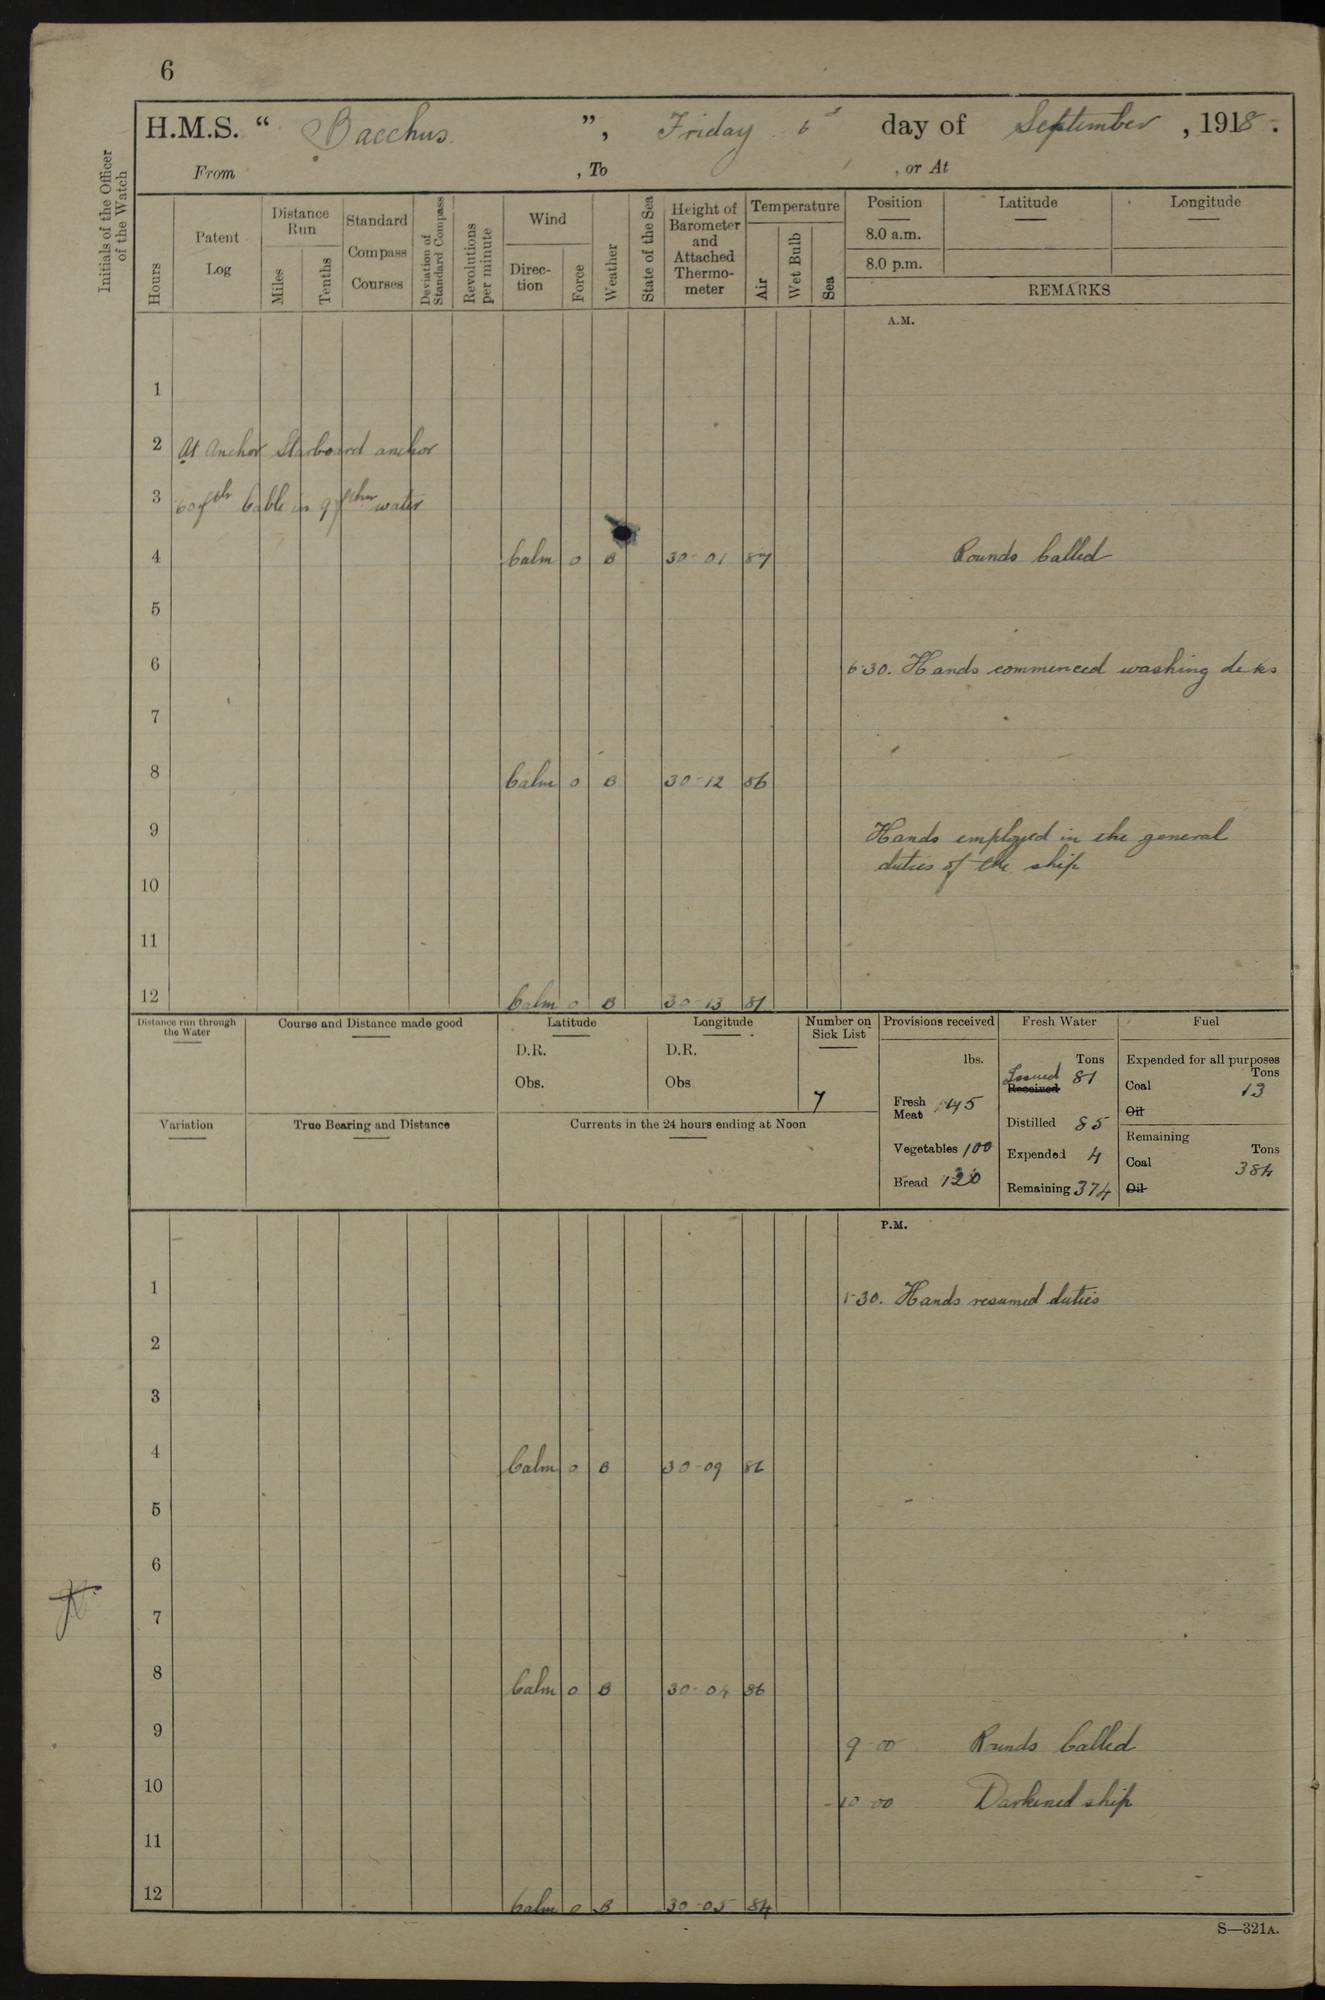 6
H.M.S. “ Bacchus ”, Friday 6 day of September , 1918 .
From , To , or At
Initials of the Officer of the Watch
Hours
Patent Log
Distance Run
Miles
Tenths
Standard Compass Courses
Deviation of Standard Compass
Revolutions per minute
Wind
Direc-tion
Force
Weather
State of the Sea
Height of Barometer and Attached Thermo-meter
Temperature
Air
Wet Bulb
Sea
Position Latitude Longitude
8.0 a.m.
8.0 p.m.
REMARKS
A.M.
1
2 At Anchor Starboard anchor
3 60 fth Cable in 9 fthm water
4 Calm 0 B 30-01 87 Rounds Called
5
6 6-30. Hands commenced washing decks
7
8 Calm 0 B 30-12 86
9 Hands employed in the general
duties of the ship
10
11
12 Calm 0 B 30-13 87
Distance run through the Water
Course and Distance made good
Latitude
D.R.
Obs.
Longitude
D.R.
Obs
Number on Sick List
7
Provisions received
lbs.
Fresh Meat 145
Vegetables 100
Bread 120
Fresh Water
Tons
Issued Received 81
Distilled 85
Expended 4
Remaining 374
Fuel
Expended for all purposes
Tons
Coal 13
Oil
Remaining
Tons
Coal 384
Oil
Variation
True Bearing and Distance
Currents in the 24 hours ending at Noon
P.M.
1 1-30. Hands resumed duties
2
3
4 Calm 0 B 30-09 86
5
6
7
8 Calm 0 B 30-04 86
9 9-00 Rounds Called
10 10-00 Darkened ship
11
12 Calm 0 B 30-05 84
S—321A.